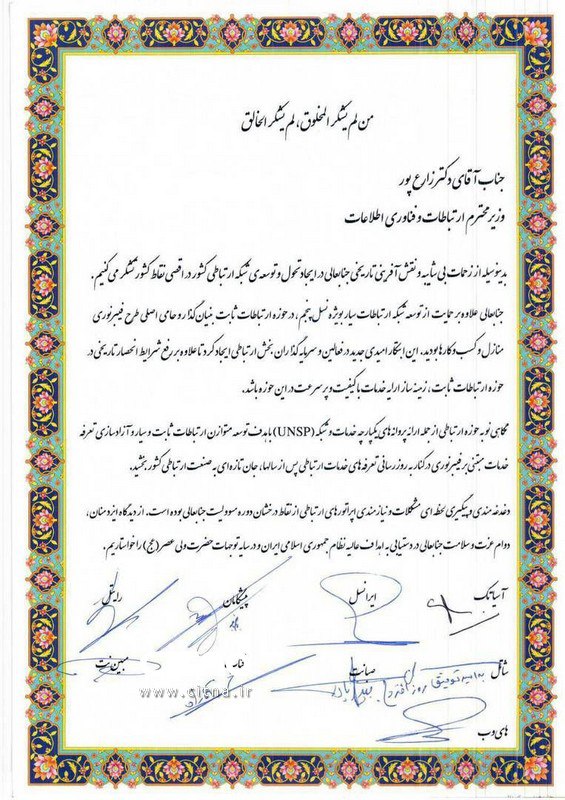 من لم یشکر المخلوق، لم یشکر الخالق
جناب آقای دکتر زارع پور
وزیر محترم ارتباطات و فناوری اطلاعات
بدینوسیله از زحمات بی شایبه و نقش آفرینی تاریخی جنابعالی در ایجاد تحول و توسعه ی شبکه ارتباطی کشور در اقصی نقاط کشور تشکر می کنیم.
جنابعالی علاوه بر حمایت از توسعه شبکه ارتباطات سیار بویژه نسل پنجم، در حوزه ارتباطات ثابت بنیان گذار و حامی اصلی طرح فیبرنوری
منازل و کسب و کارها بودید. این ابتکار امیدی جدید در فعالین و سرمایه گذاران بخش ارتباطی ایجاد کرد تا علاوه بر رفع شرایط انحصار تاریخی در
حوزه ارتباطات ثابت، زمینه ساز ارائه خدمات با کیفیت و پرسرعت در این حوزه باشد.
نگاهی نو به حوزه ارتباطی از جمله ارائه پروانه های یکپارچه خدمات و شبکه (UNSP) با هدف توسعه متوازن ارتباطات ثابت و سیار و آزادسازی تعرفه
خدمات مبتنی بر فیبرنوری در کنار به روز رسانی تعرفه های خدمات ارتباطی پس از سالها، جان تازه ای به صنعت ارتباطی کشور بخشید.
دغدغه مندی و پیگیری لحظه ای مشکلات و نیازمندی اپراتورهای ارتباطی از نقاط درخشان دوره مسوولیت جنابعالی بوده است. از دیدگاه ایزد منان،
دوام عزت و سلامت جنابعالی در دستیابی به اهداف عالیه نظام جمهوری اسلامی ایران و در سایه توجهات حضرت ولی عصر (عج) را خواستاریم.
آسیاتک ایرانسل پیشگامان رایتل
شاتل صبانت فناپ مبین نت
به امید توفیق روز افزون
www.citna.ir
های وب